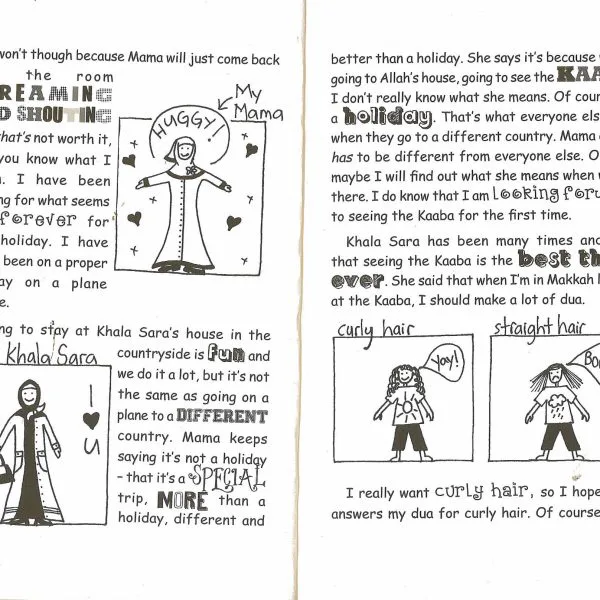 won't though because Mama will just come back
the room
REAMING
D SHOUTING
that's not worth it,
you know what I
I have been
ng for what seems
forever for
holiday. I have
been on a proper
ay on a plane
e.
My
Mama
HUGGY!
ng to stay at Khala Sara's house in the
Khala Sara
I
♥
U
countryside is fun and
we do it a lot, but it's not
the same as going on a
plane to a DIFFERENT
country. Mama keeps
saying it's not a holiday
– that it's a SPECIAL
trip, MORE than a
holiday, different and
better than a holiday. She says it's because
going to Allah's house, going to see the KAA
I don't really know what she means. Of cour
a holiday. That's what everyone els
when they go to a different country. Mama
has to be different from everyone else. O
maybe I will find out what she means when w
there. I do know that I am looking forw
to seeing the Kaaba for the first time.
Khala Sara has been many times and
that seeing the Kaaba is the best th
ever. She said that when I'm in Makkah
at the Kaaba, I should make a lot of dua.
curly hair
Yay!
straight hair
Boo
I really want curly hair, so I hope
answers my dua for curly hair. Of course